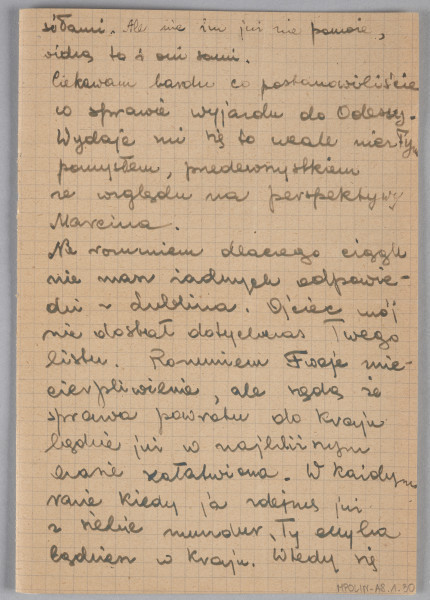 siłami. Ale nic im już nie pomoże,
widzą to i oni sami.
Ciekawam bardzo co postanowiliście
w sprawie wyjazdu do Odessy.
Wydaje mi się to wcale niezłym
pomysłem, przedewszystkiem
ze względu na perspektywy
Marcina.
Nie rozumiem dlaczego ciągle
nie masz żadnych odpowie-
dzi z Lublina. Ojciec mój
nie dostał dotychczas Twego
listu. Rozumiem Twoje nie-
cierpliwienie, ale sądzę że
sprawa powrotu do kraju
będzie już w najbliższym
czasie załatwiona. W każdym
razie kiedy ja zdejmę już
z siebie mundur, Ty chyba
będziesz w kraju. Wtedy się
MPOLIN-A8.1.30